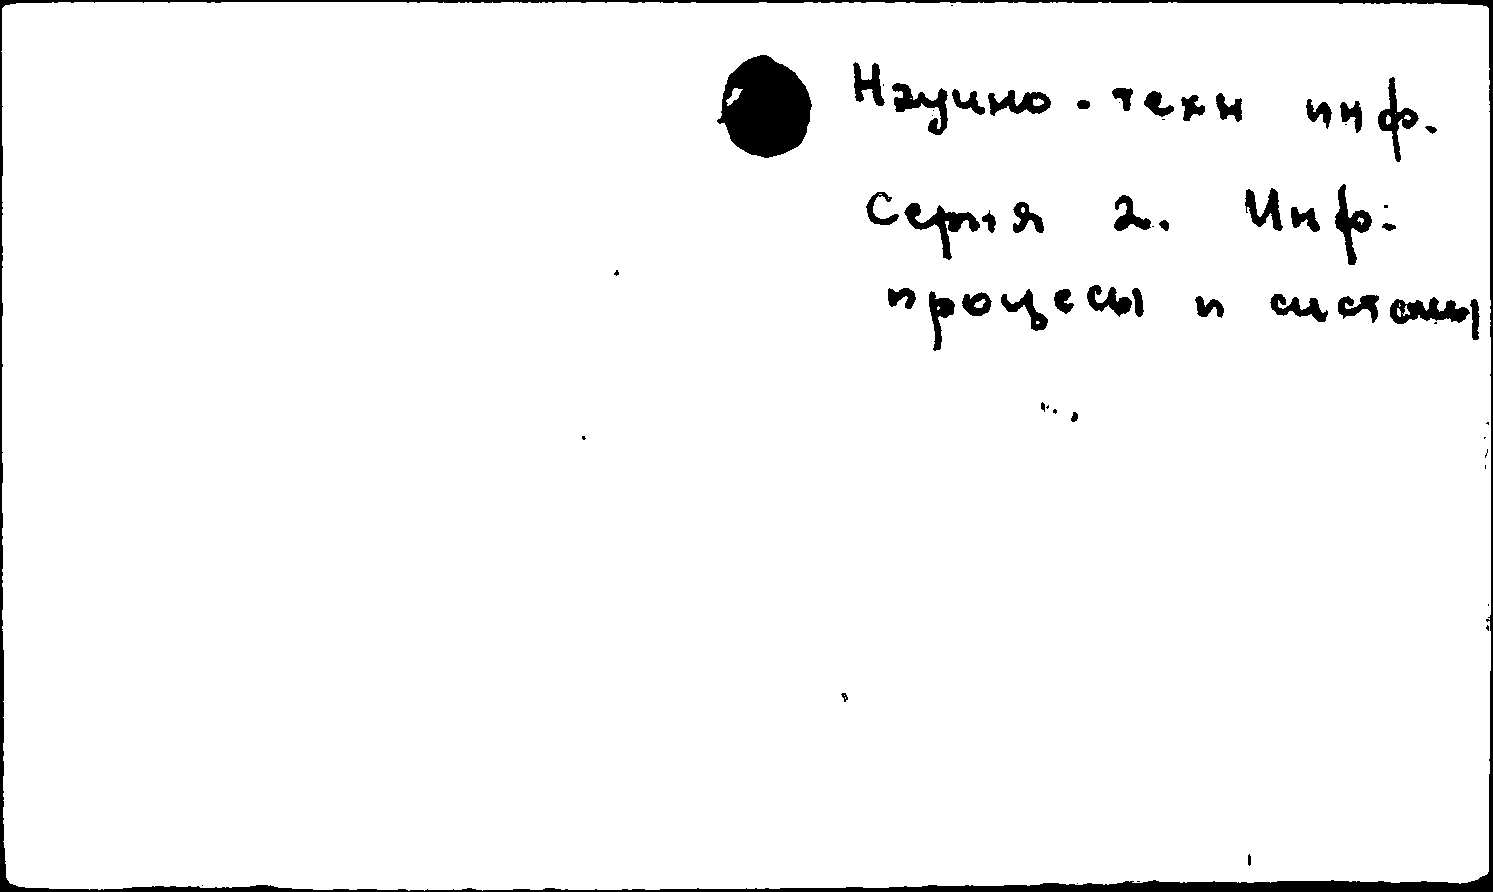 Научно-техн инф.
Серия 2. Инф.
процесы и системы